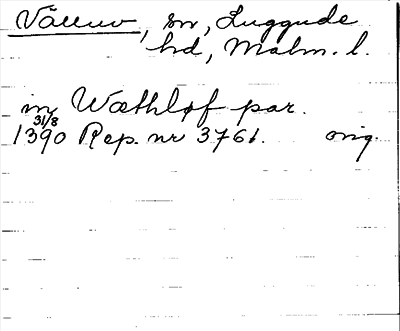 Välluv, sn, Luggude
hd, Malm. l.
in Wæthløf par.
31/8
1390 Rep. nr 3761. orig.